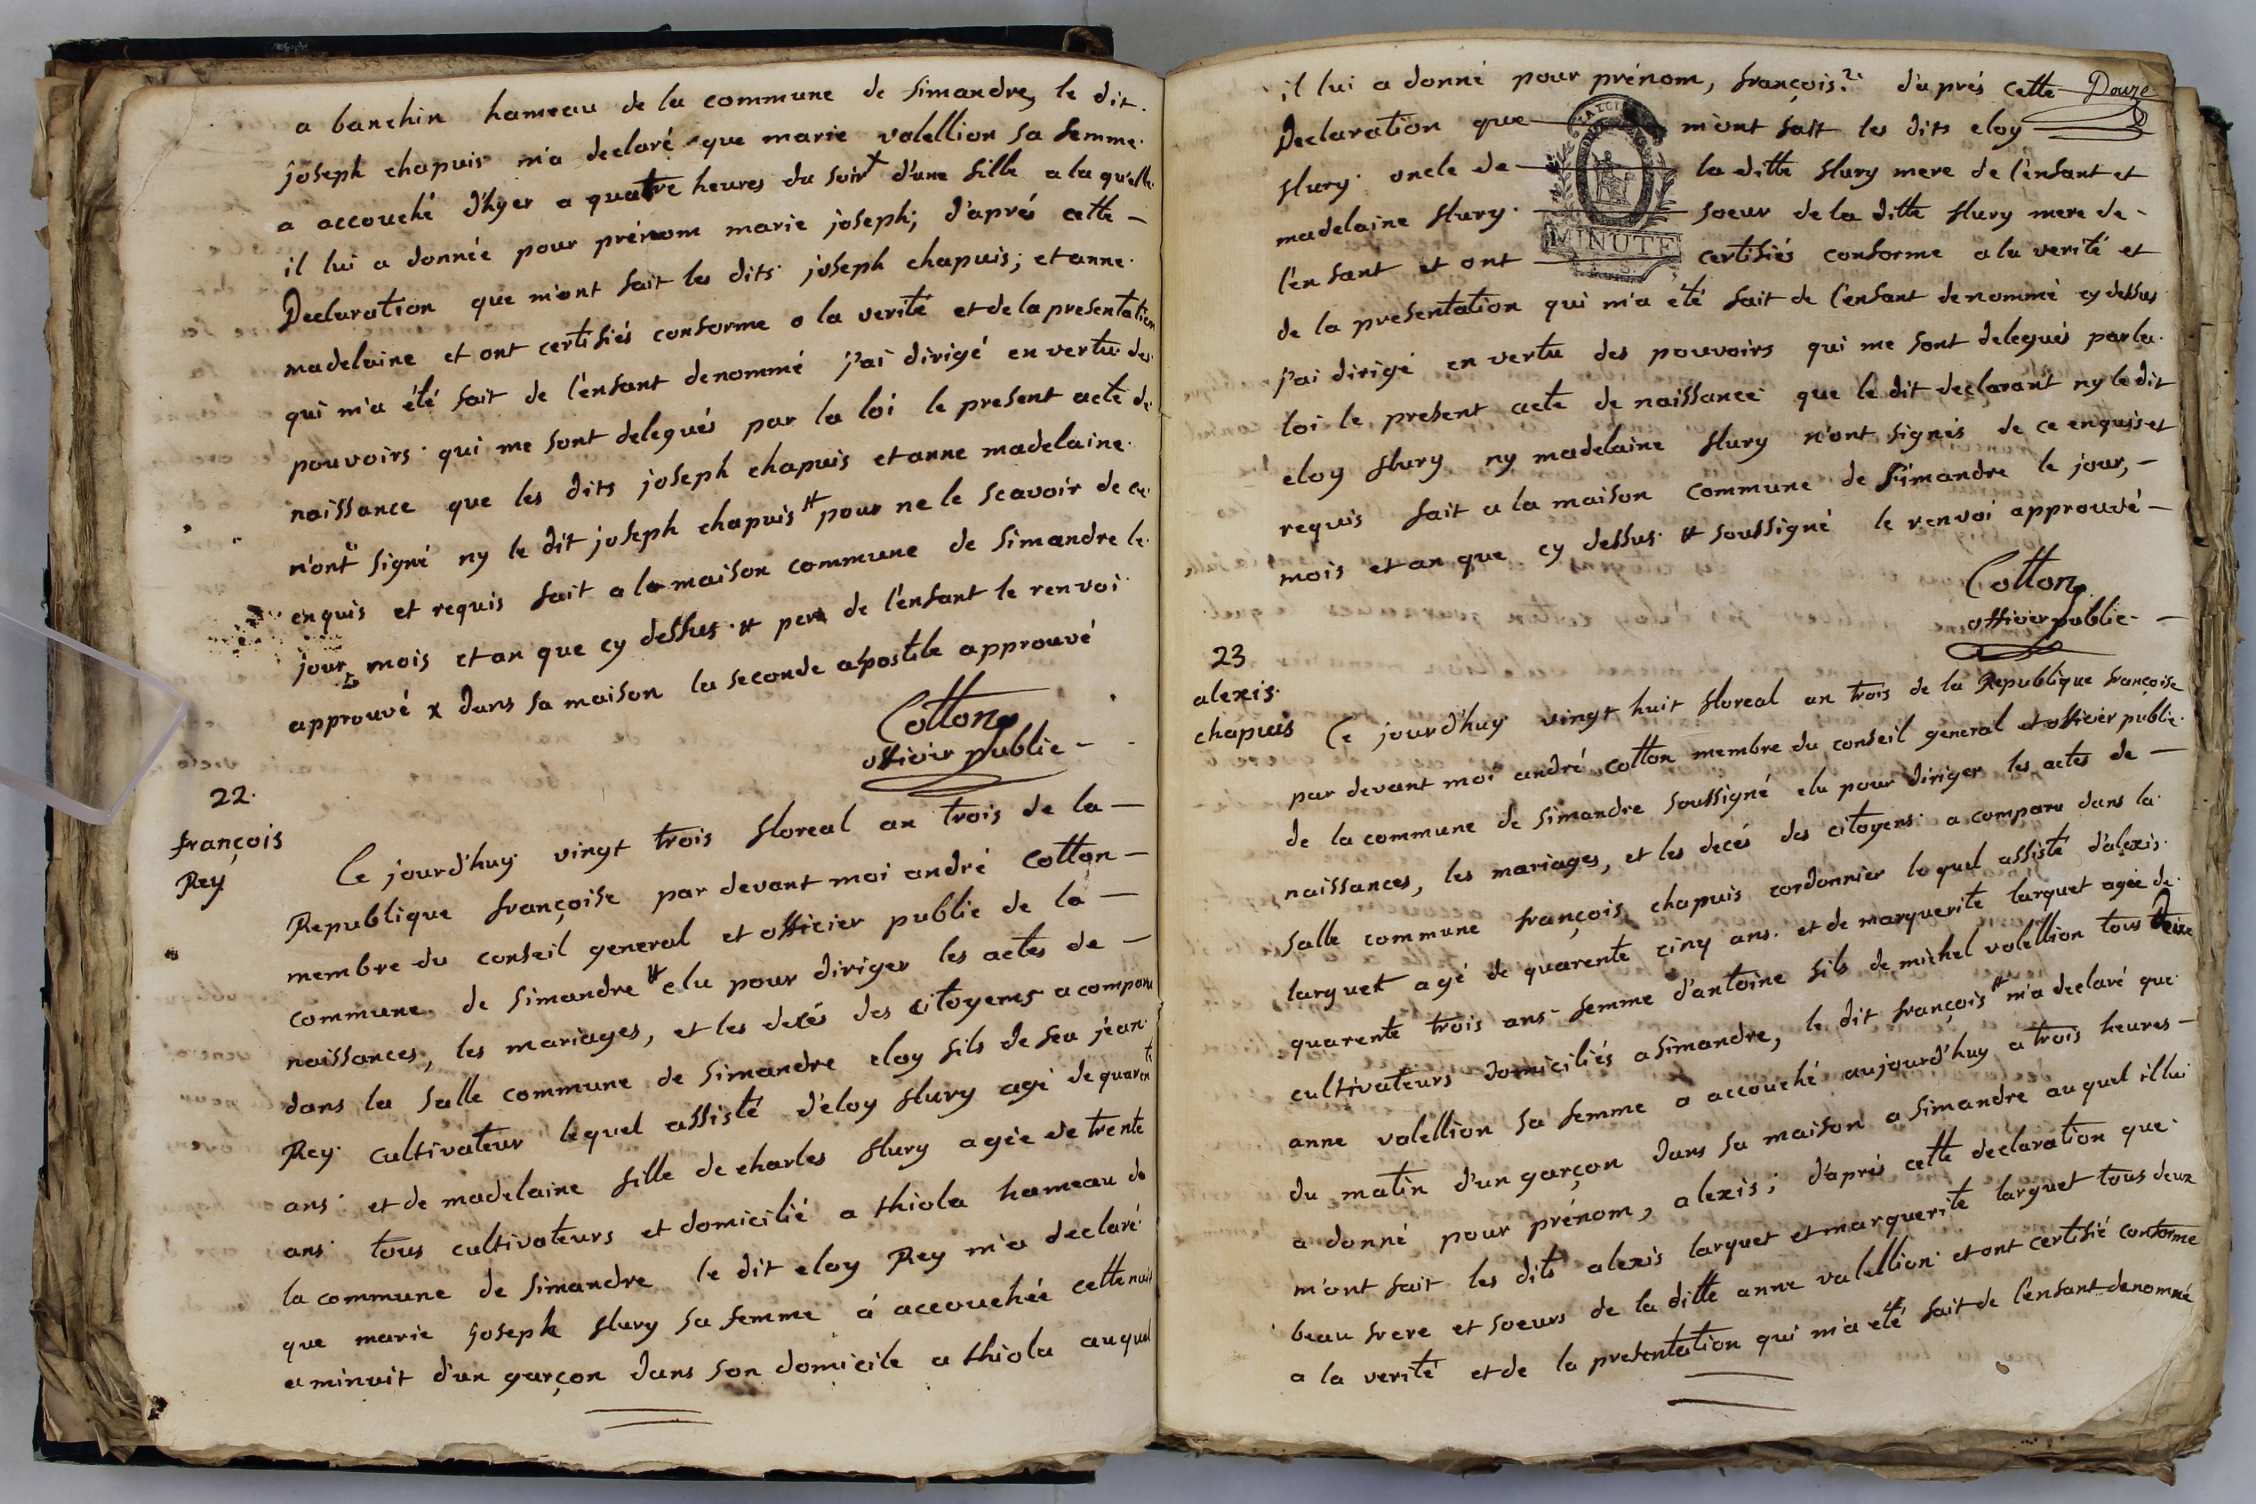 a banchin hameau de la commune de simandre, le dit
joseph chapuis m'a declaré que marie valellion sa femme
a accouché d'hyer a quatre heures du soir x d'une fille a la quelle
il lui a donnée pour prénom marie joseph; d'aprés cette -
Declaration que m'ont fait les dits joseph chapuis; et anne
madelaine et ont certifiés conforme a la verité et de la presentation
qui m'a été fait de l'enfant denommé j'ai dirigé en vertu des
pouvoirs qui me sont delegués par la loi le present acte de
naissance que les dits joseph chapuis et anne madelaine
n'ont signé ny le dit joseph chapuis # pour ne le scavoir de ce
enquis et requis fait a la maison commune de simandre le
jour mois et an que cy dessus # pere de l'enfant le renvoi
approuvé x dans sa maison la seconde apostile approuvé
Cotton
officier public -
22.
françois
Rey
Ce jourd'huy vingt trois floreal an trois de la -
Republique françoise par devant moi andré cotton -
membre du conseil general et officier public de la -
commune de simandre # elu pour diriger les actes de -
naissances, les mariages, et les decés des citoyens a comparu
dans la salle commune de simandre eloy fils de feu jean
Rey cultivateur lequel assisté d'eloy flury agé de quarente
ans et de madelaine fille de charles flury agée de trente
ans tous cultivateurs et domicilié a thiola hameau de
la commune de simandre le dit eloy Rey m'a declaré
que marie joseph flury sa femme á accouchée cette nuit
a minuit d'un garçon dans son domicile a thiola auquel
il lui a donné pour prénom, françois. d'aprés cette
Douze
Declaration que m'ont fait les dits eloy
flury oncle de la ditte flury mere de l'enfant et
madelaine flury soeur de la ditte flury mere de -
MINUTE
l'enfant et ont certifiés conforme a la verité et
de la presentation qui m'a été fait de l'enfant denommé cy dessus
j'ai dirigé en vertu des pouvoirs qui me sont delegués par la
loi le present acte de naissance que le dit declarant ny le dit
eloy flury ny madelaine flury n'ont signés de ce enquis et
requis fait a la maison commune de simandre le jour, -
mois et an que cy dessus # soussigné le renvoi approuvé -
Cotton
officier public -
23
alexis
chapuis
Ce jourd'huy vingt huit floreal an trois de la Republique françoise
par devant moi andré cotton membre du conseil general et officier public
de la commune de simandre soussigné elu pour diriger les actes de -
naissances, les mariages, et les decés des citoyens a comparu dans la
salle commune françois chapuis cordonnier lequel assisté d'alexis
larguet agé de quarente cinq ans et de marguerite larguet agée de
quarente trois ans femme d'antoine fils de michel valellion tous deux
cultivateurs domiciliés a simandre, le dit françois # m'a declaré que
anne valellion sa femme a accouché aujourd'huy a trois heures -
du matin d'un garçon dans sa maison a simandre auquel il lui
a donné pour prénom, alexis; d'aprés cette declaration que
m'ont fait les dits alexis larguet et marguerite larguet tous deux
beau frere et soeurs de la ditte anne valellion et ont certifié conforme
a la verité et de la presentation qui m'a été fait de l'enfant denommé